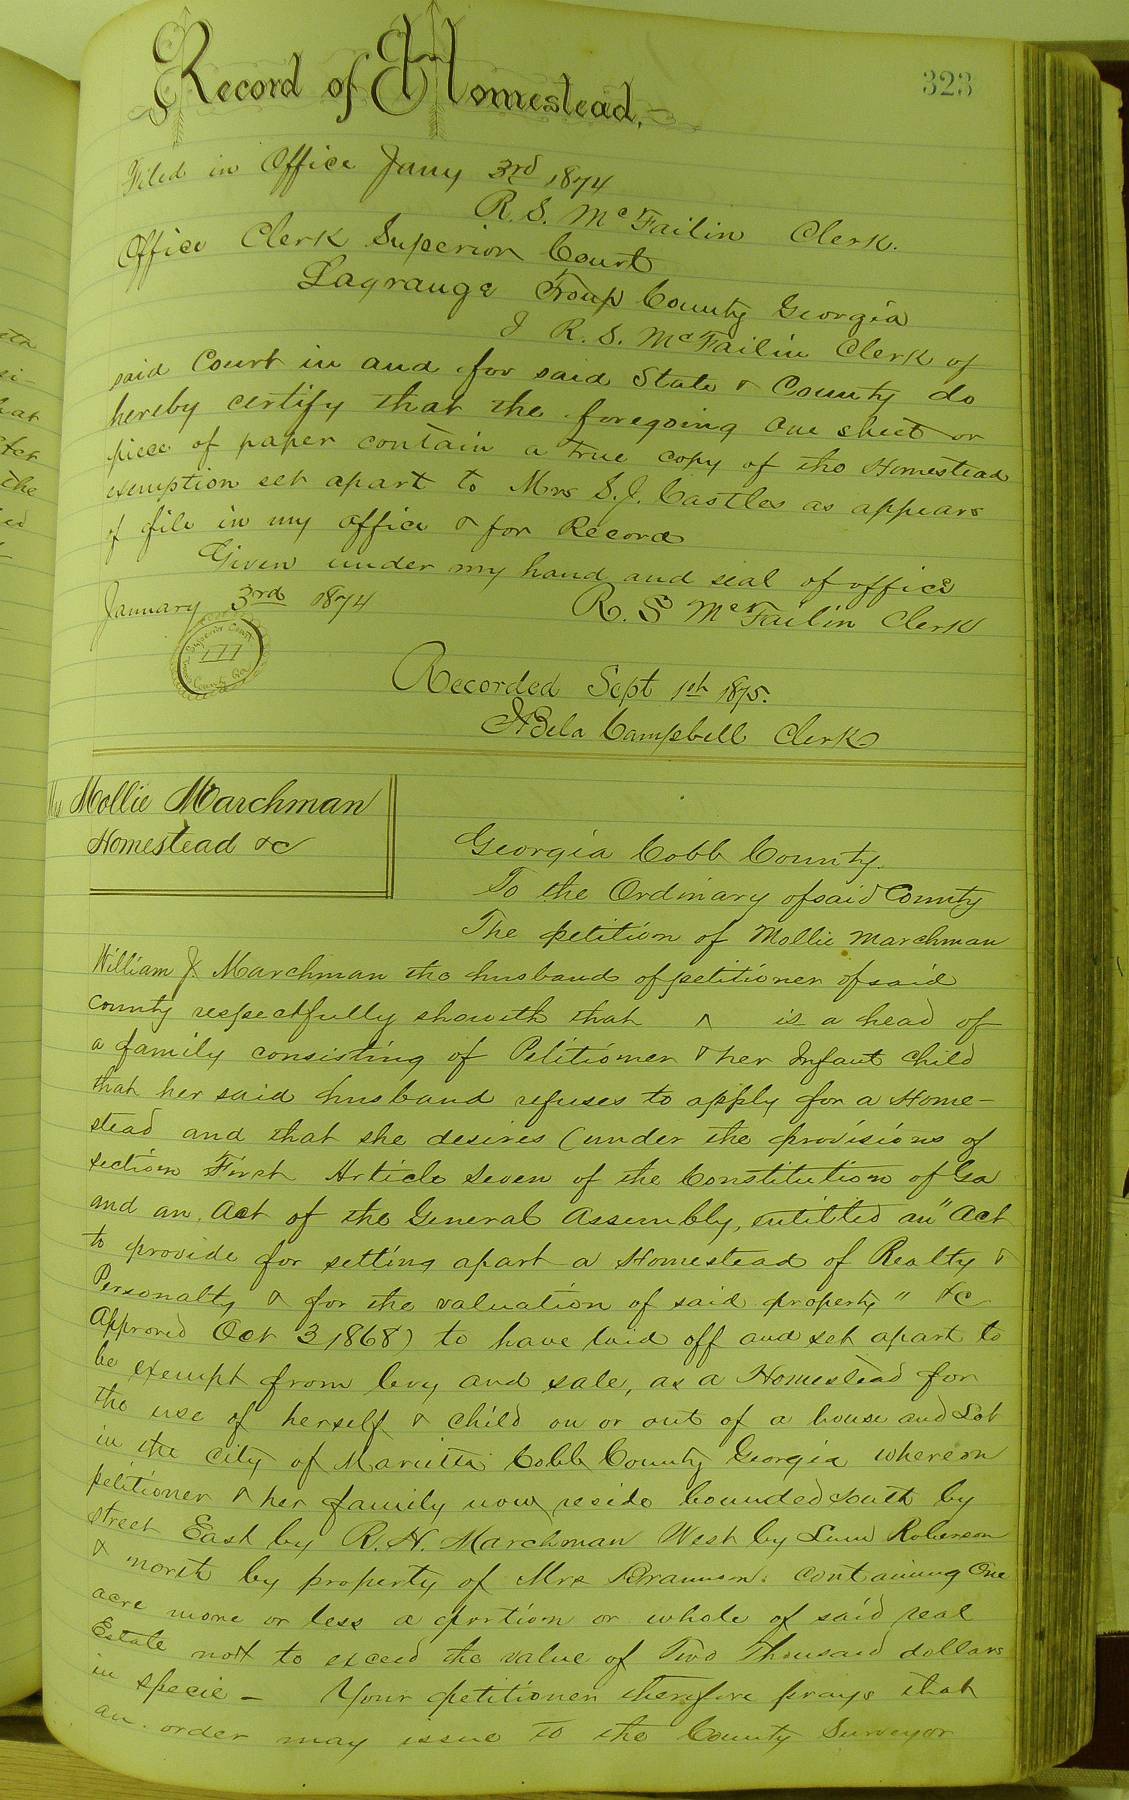 323
Record of Homestead.
Filed in Office Jany 3rd 1874
R. S. McFailin Clerk.
Office Clerk Superior Court
Lagrange Troup County Georgia
I R. S. McFailin Clerk of
said Court in and for said State & County do
hereby certify that the foregoing one sheet or
piece of paper contain a true copy of the Homestead
exemption set apart to Mrs S. J. Castles as appears
of file in my office & for Record
Given under my hand and seal of office
January 3rd 1874 R. S McFailin Clerk
Superior Court
County Ga
Recorded Sept 1st 1875.
Bela Campbell Clerk
Mrs Mollie Marchman
Homestead &c
Georgia Cobb County.
To the Ordinary of said County
The petition of Mollie Marchman
William J. Marchman the husband of petitioner of said
county respectfully showeth that ^ is a head of
a family consisting of Petitioner & her Infant child
that her said husband refuses to apply for a Home-
stead and that she desires (under the provisions of
section First Article Seven of the Constitution of Ga
and an Act of the General Assembly, entitled an "Act
to provide for setting apart a Homestead of Realty &
Personalty & for the valuation of said property" &c
Approved Oct 3 1868) to have laid off and set apart to
be exempt from levy and sale, as a Homestead for
the use of herself & child on or out of a house and Lot
in the city of Marietta Cobb County Georgia whereon
petitioner & her family now reside bounded South by
street East by R. H. Marchman West by Roberson
& north by property of Mrs Brannon. containing One
acre more or less a portion or whole of said real
Estate not to exceed the value of Two Thousand dollars
in specie - Your petitioner therefore prays that
an order may issue to the County Surveyor